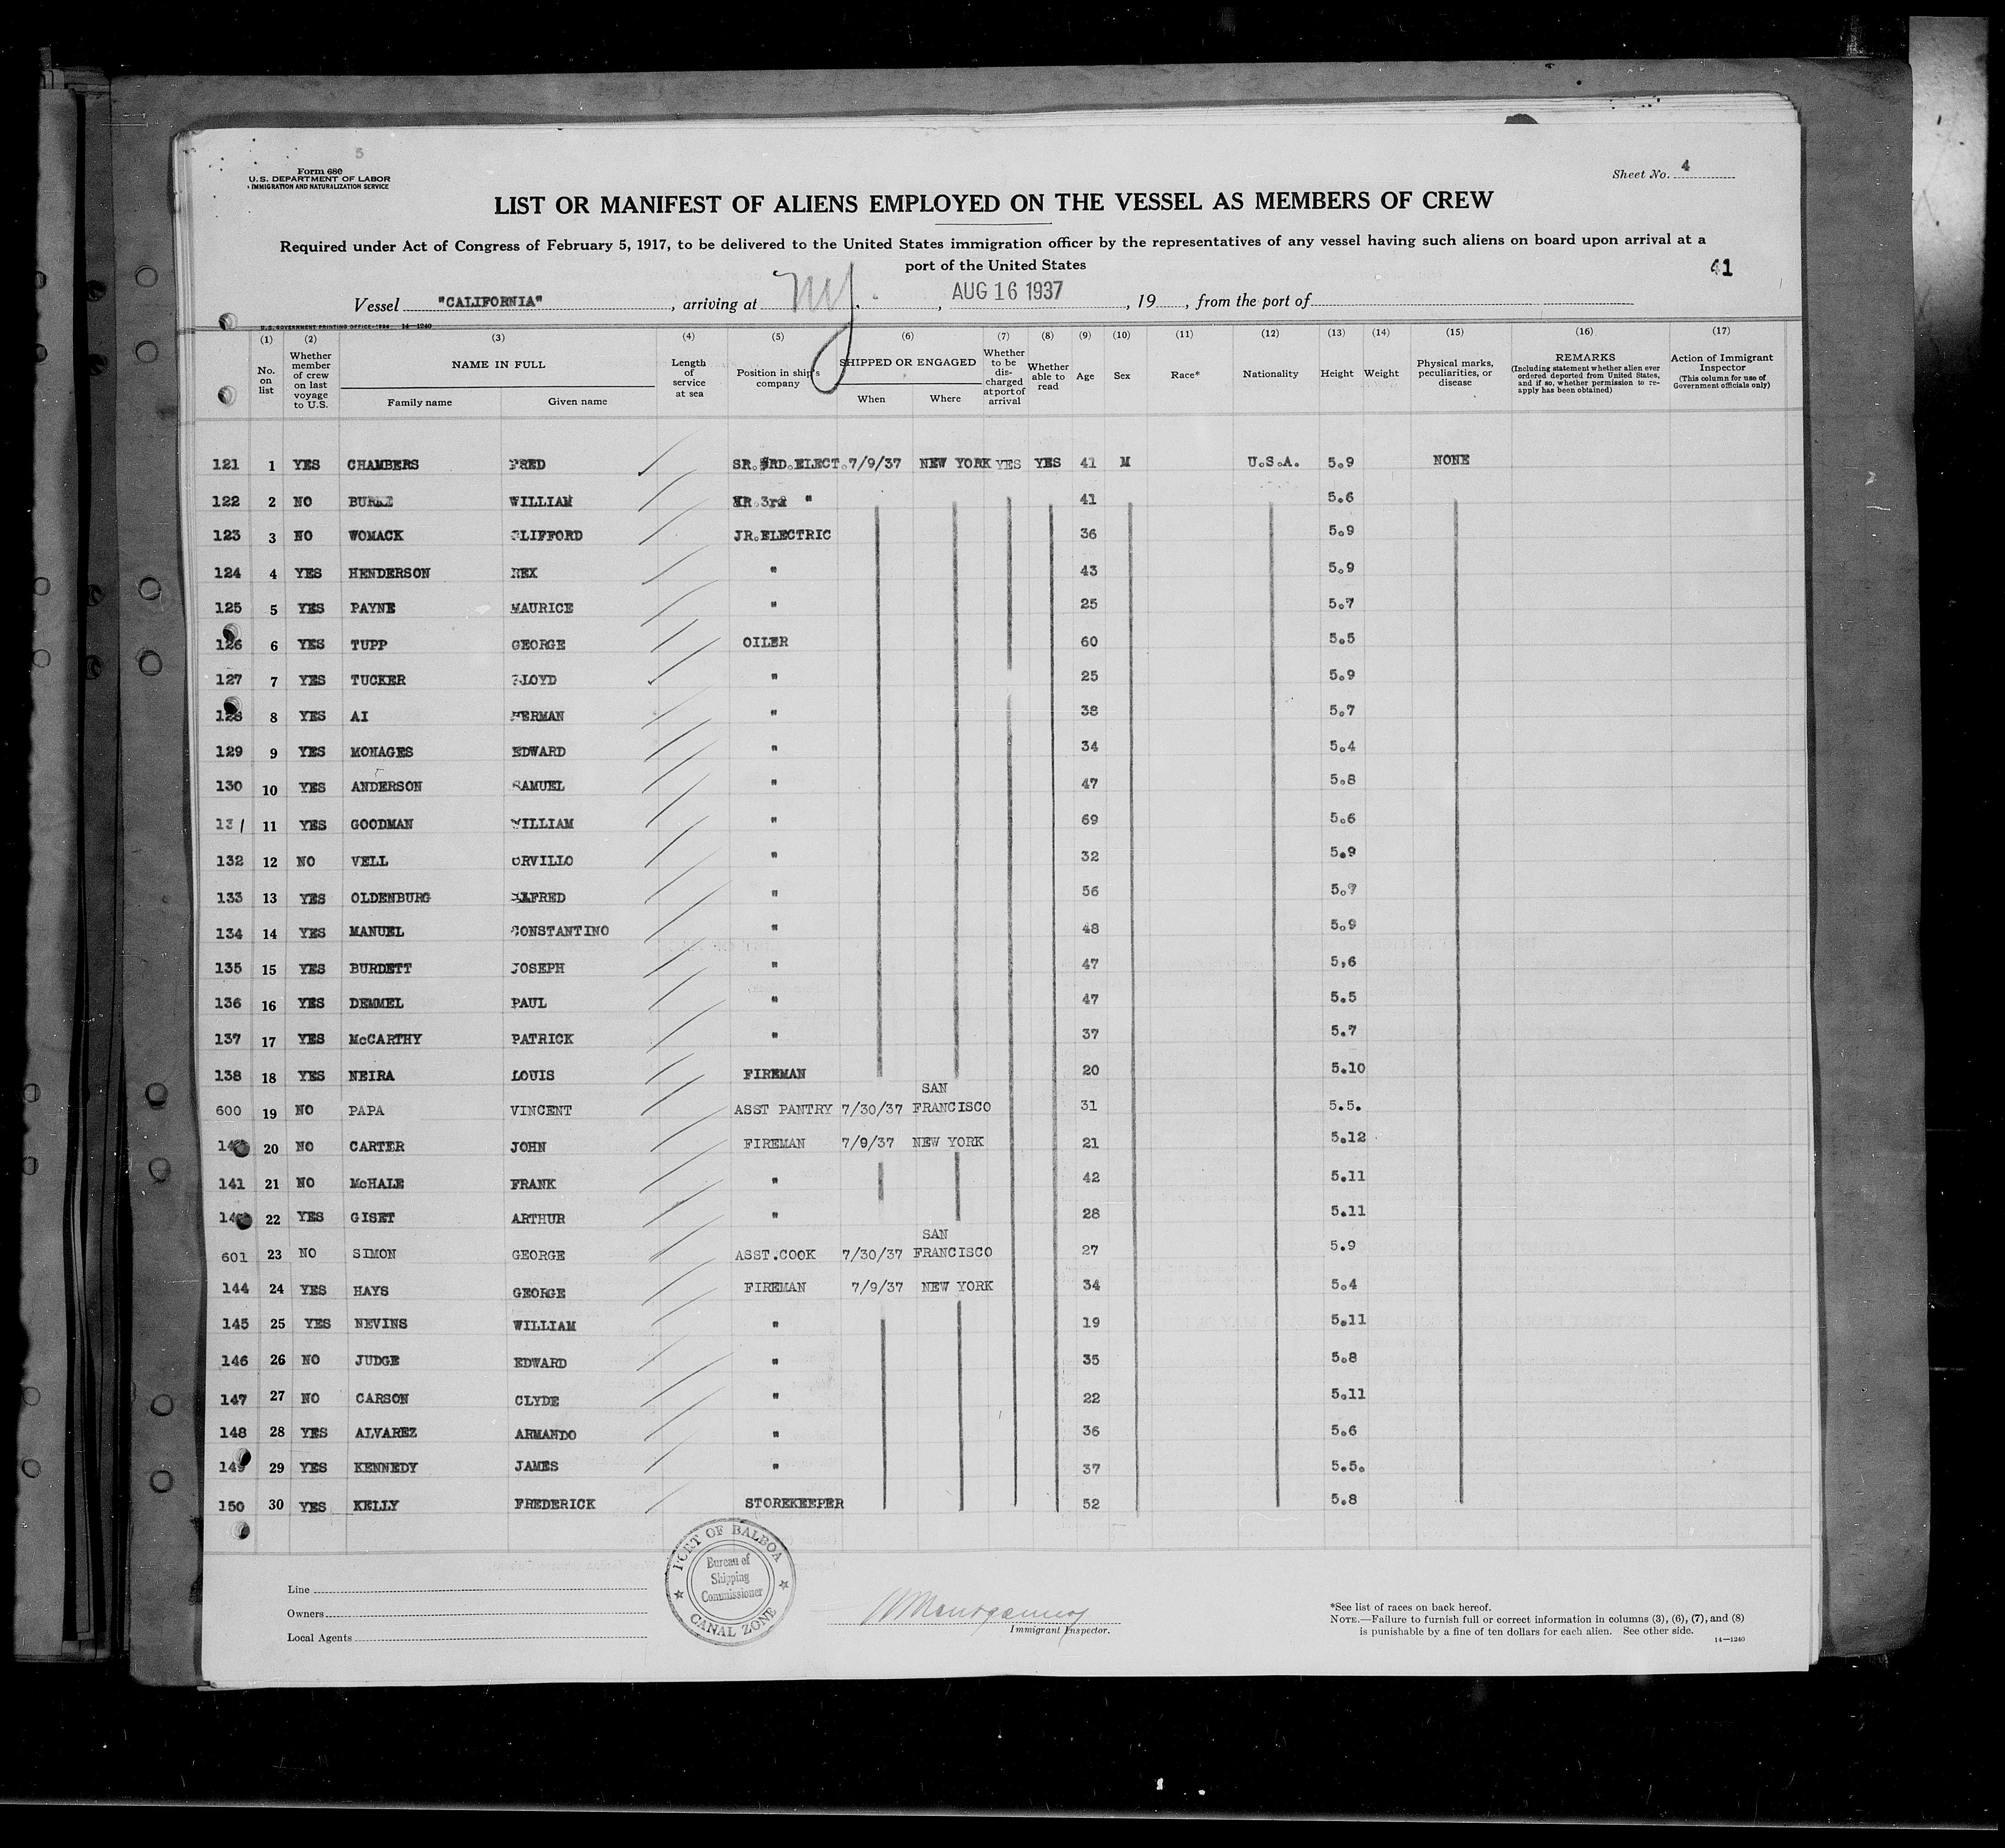 5
Form 680
U.S. DEPARTMENT OF LABOR
IMMIGRATION AND NATURALIZATION SERVICE
Sheet No. 4
LIST OR MANIFEST OF ALIENS EMPLOYED ON THE VESSEL AS MEMBERS OF CREW
Required under Act of Congress of February 5, 1917, to be delivered to the United States immigration officer by the representatives of any vessel having such aliens on board upon arrival at a
port of the United States
41
Vessel "CALIFORNIA", arriving at NY., AUG 16 1937, 19, from the port of
U.S. GOVERNMENT PRINTING OFFICE-1934 14-1240
(1) (2) (3) (4) (5) (6) (7) (8) (9) (10) (11) (12) (13) (14) (15) (16) (17)
No. on list
Whether member of crew on last voyage to U.S.
NAME IN FULL
Family name Given name
Length of service at sea
Position in ship's company
SHIPPED OR ENGAGED
When Where
Whether to be discharged at port of arrival
Whether able to read
Age Sex Race* Nationality Height Weight
Physical marks, peculiarities, or disease
REMARKS
(Including statement whether alien ever ordered deported from United States, and if so, whether permission to re-apply has been obtained)
Action of Immigrant Inspector
(This column for use of Government officials only)
121 1 YES CHAMBERS FRED SR. 3RD. ELECT. 7/9/37 NEW YORK YES YES 41 M U.S.A. 5.9 NONE
122 2 NO BURKE WILLIAM JR. 3rd " 41 5.6
123 3 NO WOMACK CLIFFORD JR.ELECTRIC 36 5.9
124 4 YES HENDERSON REX " 43 5.9
125 5 YES PAYNE MAURICE " 25 5.7
126 6 YES TUPP GEORGE OILER 60 5.5
127 7 YES TUCKER FLOYD " 25 5.9
128 8 YES AI HERMAN " 38 5.7
129 9 YES MONAGES EDWARD " 34 5.4
130 10 YES ANDERSON SAMUEL " 47 5.8
131 11 YES GOODMAN WILLIAM " 69 5.6
132 12 NO VELL ORVILLO " 32 5.9
133 13 YES OLDENBURG ALFRED " 56 5.7
134 14 YES MANUEL CONSTANTINO " 48 5.9
135 15 YES BURDETT JOSEPH " 47 5,6
136 16 YES DEMMEL PAUL " 47 5.5
137 17 YES McCARTHY PATRICK " 37 5.7
138 18 YES NEIRA LOUIS FIREMAN 20 5.10
600 19 NO PAPA VINCENT ASST PANTRY 7/30/37 SAN FRANCISCO 31 5.5.
14 20 NO CARTER JOHN FIREMAN 7/9/37 NEW YORK 21 5.12
141 21 NO McHALE FRANK " 42 5.11
14 22 YES GISET ARTHUR " 28 5.11
601 23 NO SIMON GEORGE ASST.COOK 7/30/37 SAN FRANCISCO 27 5.9
144 24 YES HAYS GEORGE FIREMAN 7/9/37 NEW YORK 34 5.4
145 25 YES NEVINS WILLIAM " 19 5.11
146 26 NO JUDGE EDWARD " 35 5.8
147 27 NO CARSON CLYDE " 22 5.11
148 28 YES ALVAREZ ARMANDO " 36 5.6
149 29 YES KENNEDY JAMES " 37 5.5.
150 30 YES KELLY FREDERICK STOREKEEPER 52 5.8
Line
Owners
Local Agents
PORT OF BALBOA
Bureau of
Shipping
Commissioner
CANAL ZONE
Immigrant Inspector.
*See list of races on back hereof.
NOTE.—Failure to furnish full or correct information in columns (3), (6), (7), and (8)
is punishable by a fine of ten dollars for each alien. See other side.
14—1240